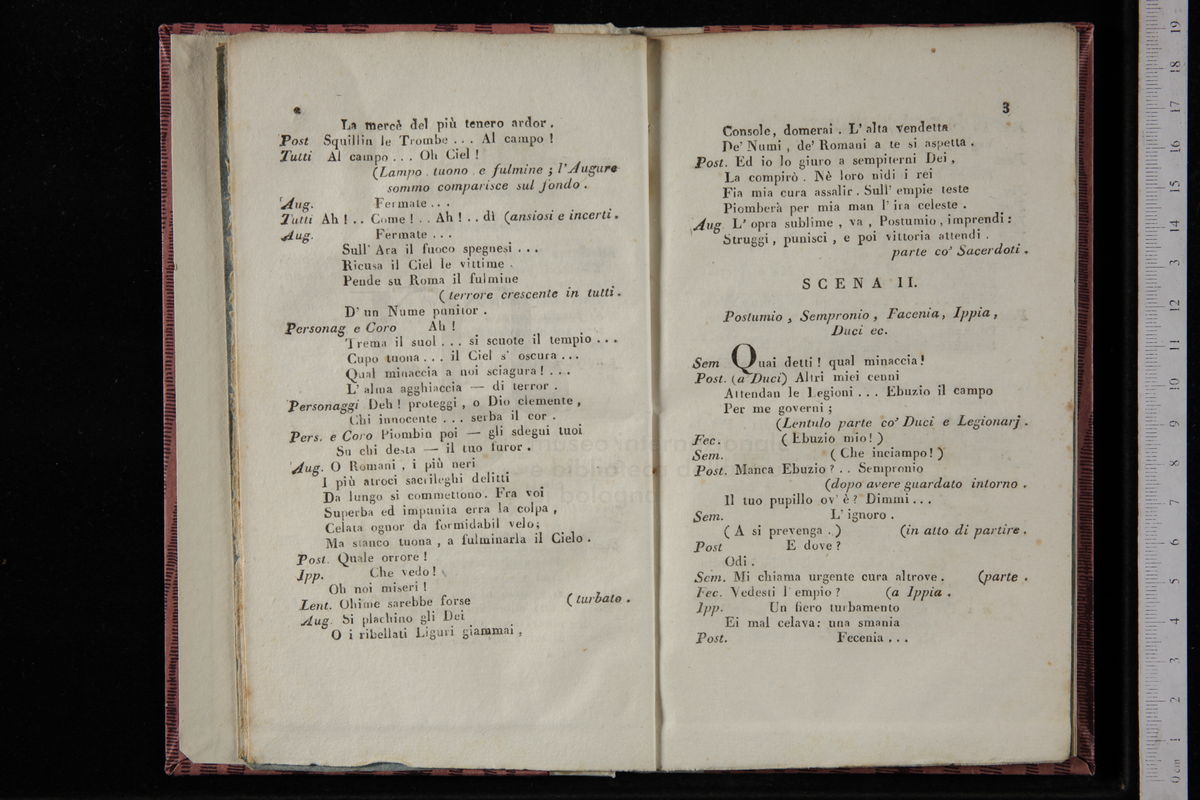 La mercè del più tenero ardor .
Post Squillin le Trombe . . . Al campo !
Tutti Al campo . . . Oh Ciel !
(Lampo . tuono . e fulmine ; l'Augure
sommo comparisce sul fondo .
Aug. Fermate . . .
Tutti Ah ! . . Come ! . . Ah ! . . dì (ansiosi e incerti .
Aug. Fermate . . .
Sull' Ara il fuoco spegnesi . . .
Ricusa il Ciel le vittime .
Pende su Roma il fulmine
( terrore crescente in tutti .
D' un Nume punitor .
Personag e Coro Ah !
Trema il suol . . . si scuote il tempio . . .
Cupo tuona . . . il Ciel s' oscura . . .
Qual minaccia a noi sciagura ! . . .
L' alma agghiaccia — di terror .
Personaggi Deh ! proteggi , o Dio clemente ,
Chi innocente . . . serba il cor .
Pers. e Coro Piombin poi — gli sdegui tuoi
Su chi desta — il tuo furor .
Aug. O Romani , i più neri
I più atroci sacrileghi delitti
Da lungo si commettono. Fra voi
Superba ed impunita erra la colpa ,
Celata ognor da formidabil velo;
Ma stanco tuona , a fulminarla il Cielo .
Post. Quale orrore !
Ipp. Che vedo !
Oh noi miseri !
Lent. Ohime sarebbe forse ( turbato .
Aug. Si plachino gli Dei
O i ribellati Liguri giammai ,
3
Console, domerai . L' alta vendetta
De' Numi , de' Romani a te si aspetta .
Post. Ed io lo giuro a sempiterni Dei ,
La compirò . Nè loro nidi i rei
Fia mia cura assalir . Sull' empie teste
Piomberà per mia man l' ira celeste .
Aug L' opra sublime , va , Postumio , imprendi :
Struggi , punisci , e poi vittoria attendi .
parte co' Sacerdoti .
SCENA II.
Postumio , Sempronio , Facenia, Ippia ,
Duci ec.
Sem Quai detti ! qual minaccia !
Post. (a Duci) Altri miei cenni
Attendan le Legioni . . . Ebuzio il campo
Per me governi ;
(Lentulo parte co' Duci e Legionarj .
Fec. ( Ebuzio mio ! )
Sem. ( Che inciampo ! )
Post. Manca Ebuzio ? . . Sempronio
(dopo avere guardato intorno .
Il tuo pupillo ov' è ? Dimmi . . .
Sem. L' ignoro .
( A si prevenga . ) (in atto di partire .
Post E dove ?
Odi .
Sem. Mi chiama urgente cura altrove . (parte .
Fec. Vedesti l' empio ? (a Ippia .
Ipp. Un fiero turbamento
Ei mal celava: una smania
Post. Fecenia . . .
museo internazionale
e biblioteca della
di bologna
0 cm 1 2 3 4 5 6 7 8 9 10 11 12 13 14 15 16 17 18 19